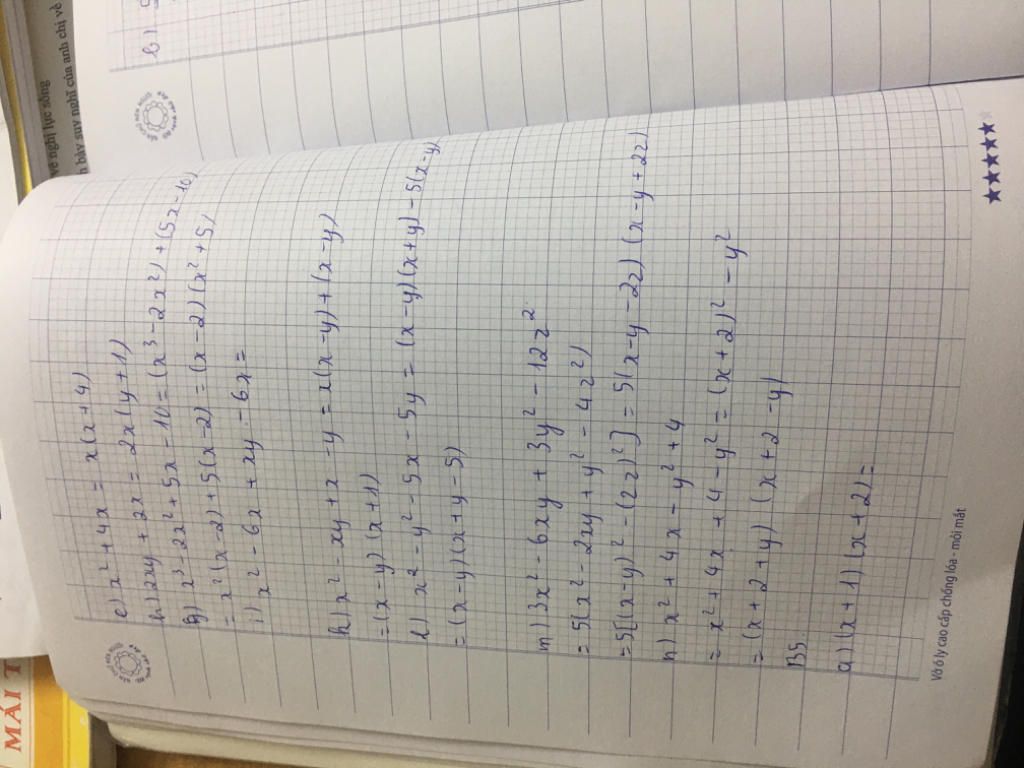 e) x² + 4x = x(x + 4)
h) 2xy + 2x = 2x(y + 1)
g) x³ - 2x² + 5x - 10 = (x³ - 2x²) + (5x - 10)
= x²(x - 2) + 5(x - 2) = (x - 2)(x² + 5)
i) x² - 6x + xy - 6x =
k) x² - xy + x - y = x(x - y) + (x - y)
= (x - y)(x + 1)
l) x² - y² - 5x - 5y = (x - y)(x + y) - 5(x - y)
= (x - y)(x + y - 5)
m) 3x² - 6xy + 3y² - 12z²
= 5(x² - 2xy + y² - 4z²)
= 5[(x - y)² - (2z)²] = 5(x - y - 2z)(x - y + 2z)
n) x² + 4x - y² + 4
= x² + 4x + 4 - y² = (x + 2)² - y²
= (x + 2 + y)(x + 2 - y)
B5.
a) (x + 1)(x + 2) =
Vở ô ly cao cấp chống lóa - mỏi mắt
b)
MÁI T
về nghị lực sống
h bày suy nghĩ của anh chị về